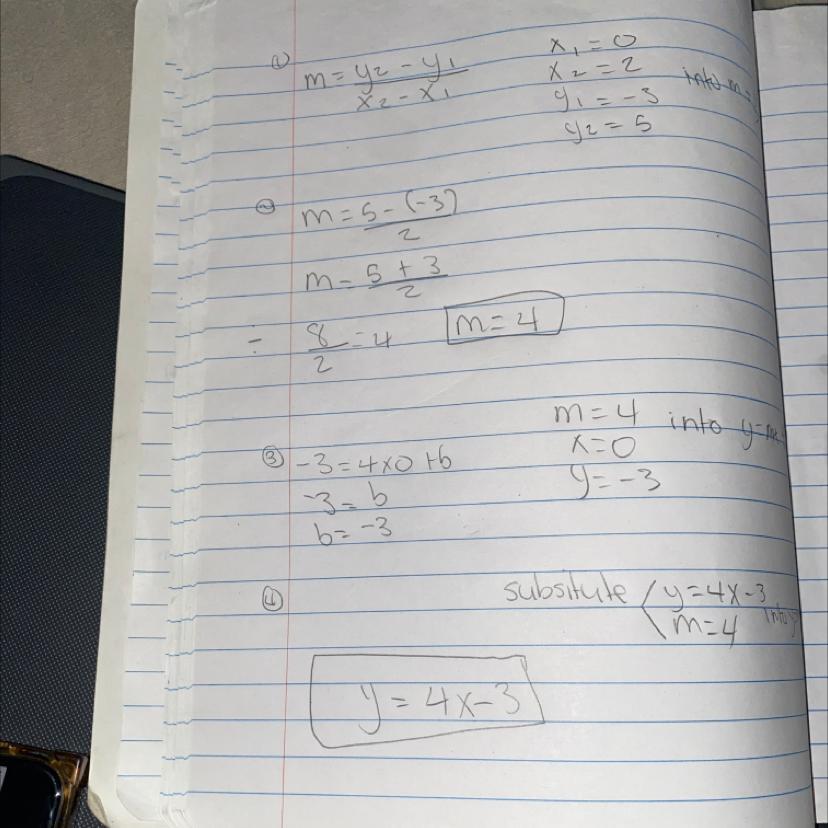 ① m = y₂ - y₁ / x₂ - x₁
x₁ = 0
x₂ = 2
y₁ = -3
y₂ = 5
into m =
② m = 5 - (-3) / 2
m = 5 + 3 / 2
÷ 8/2 = 4
m = 4
m = 4
x = 0
y = -3
into y = m
③ -3 = 4x0 + b
-3 = b
b = -3
④ subsitute y = 4x - 3
m = 4
into y
y = 4x - 3